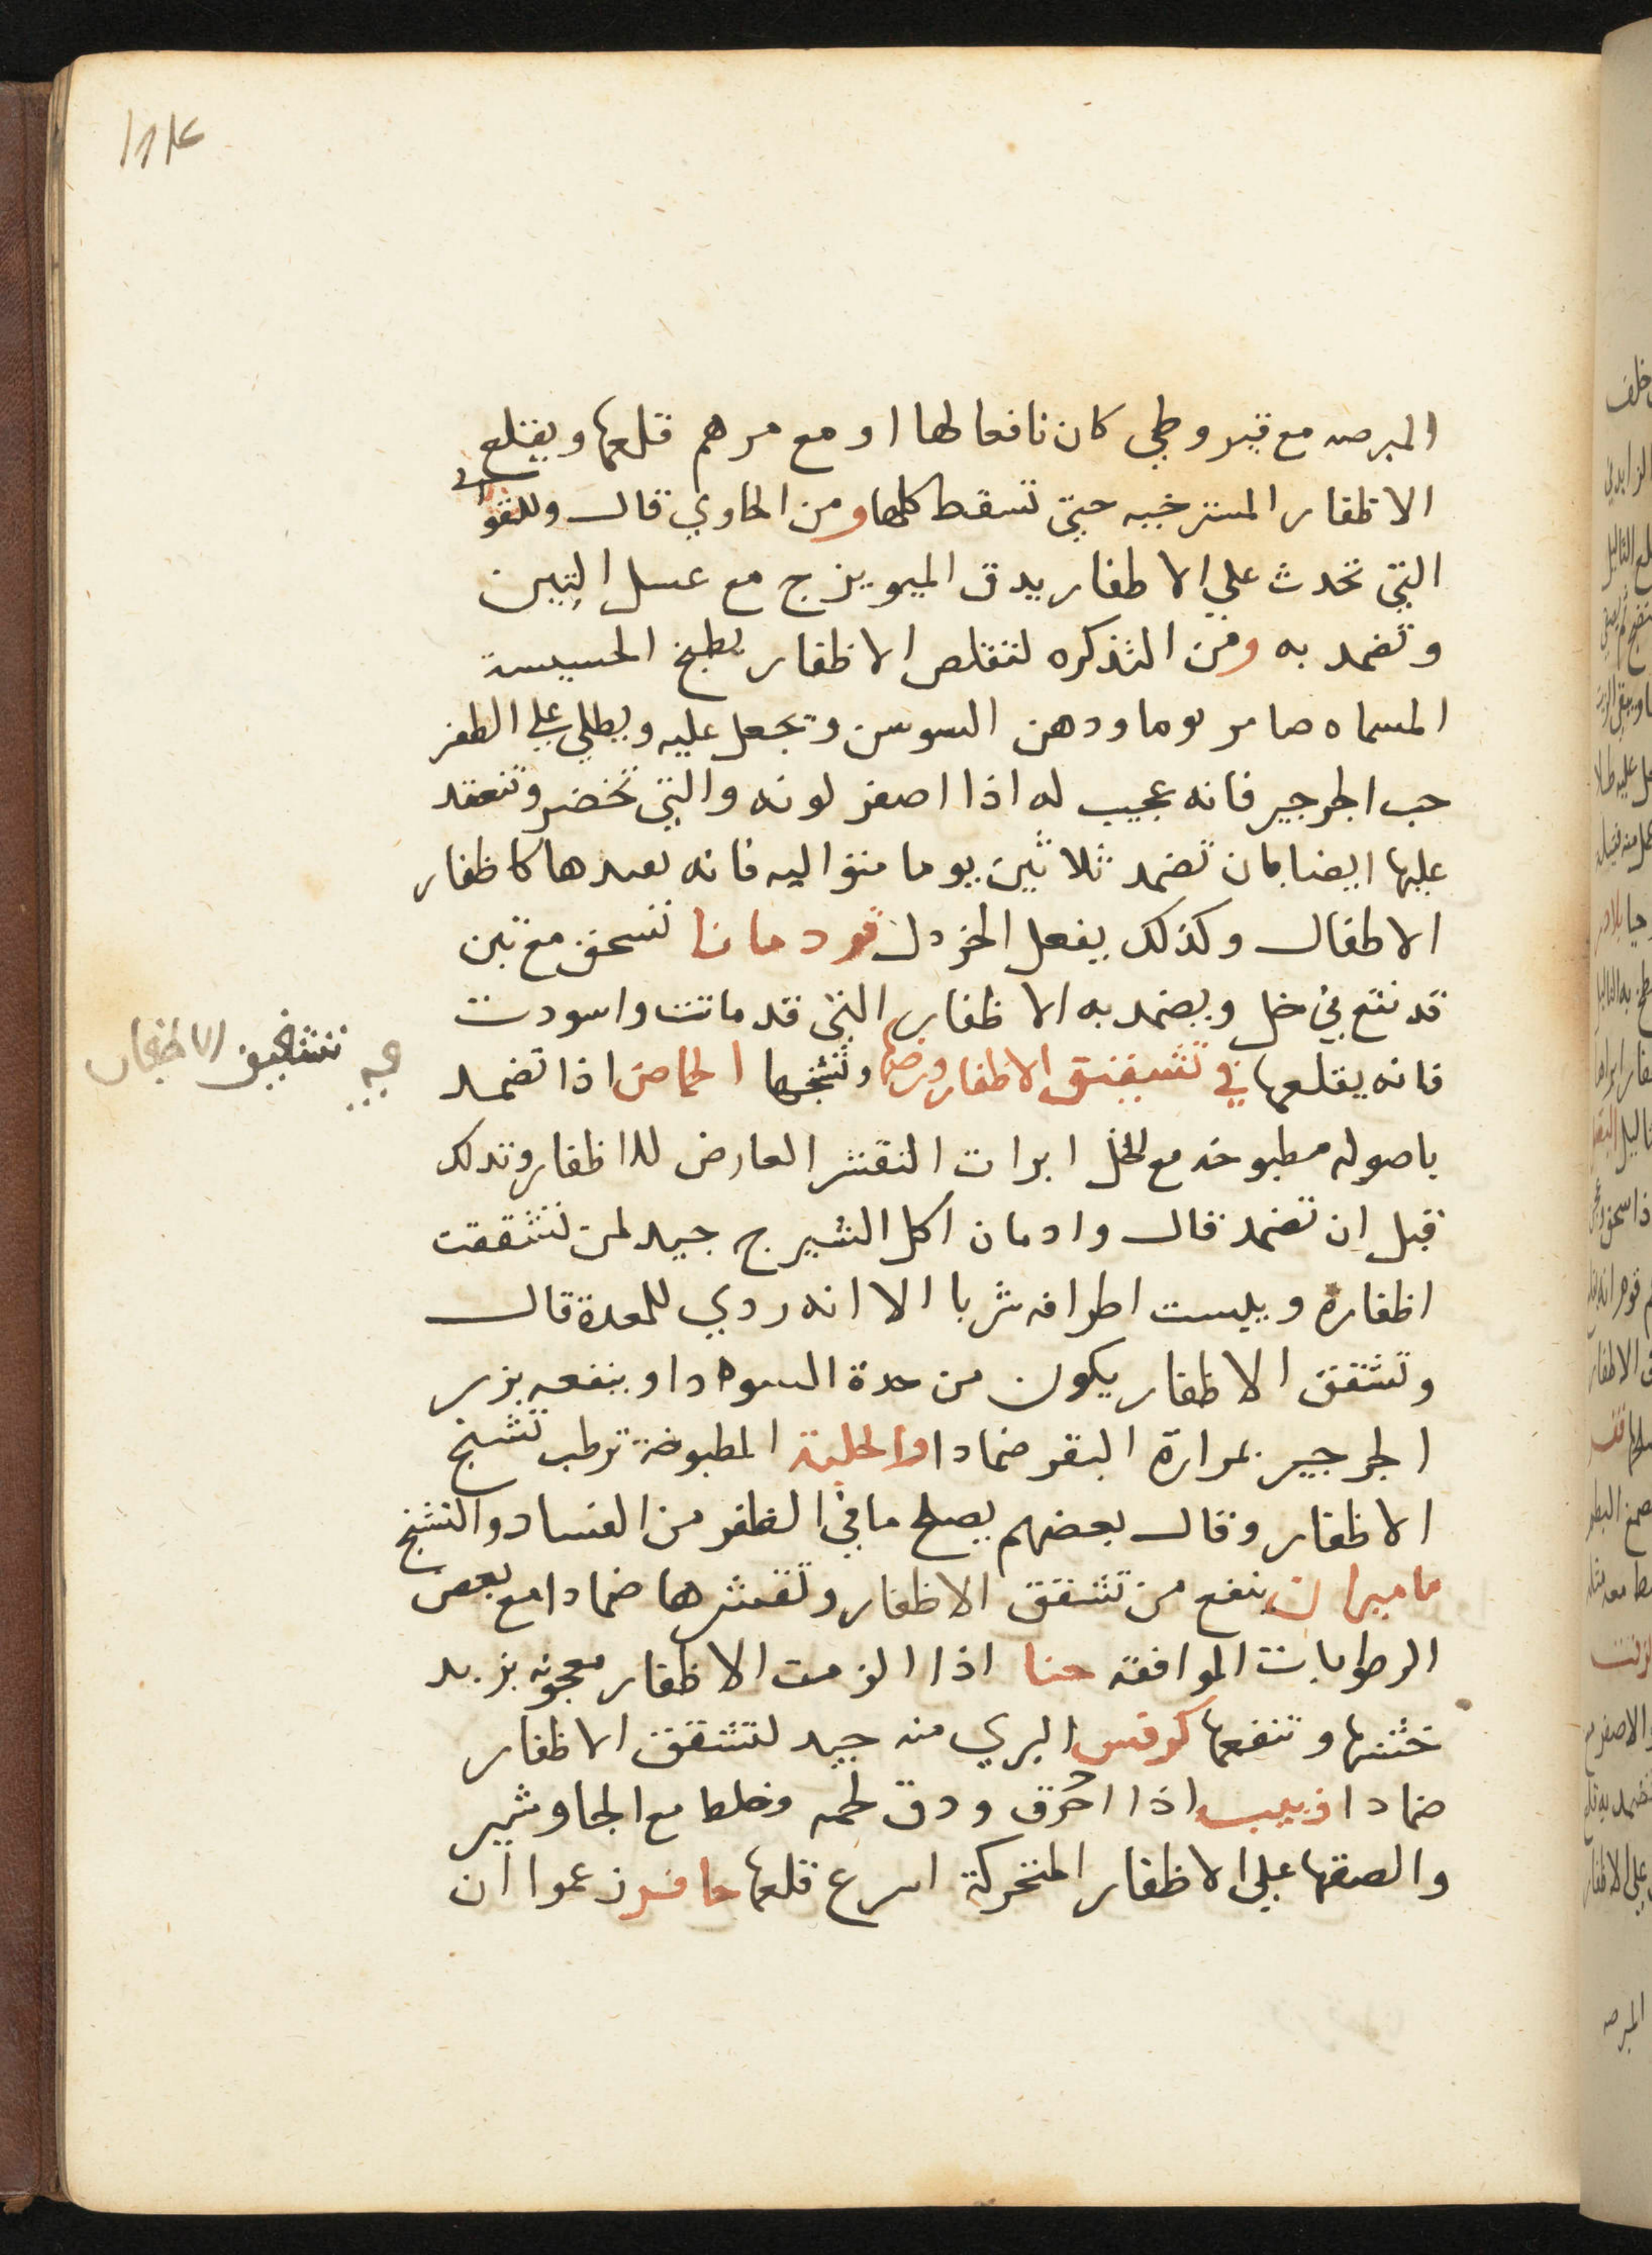 المبرصه مع قيروطي كان نافعا لها او مع مرهم قلعها ويقلع
الاظفار المسترخيه حتى تسقط كلها ومن الحاوي قال وللقوابي
التي تحدث علي الاظفار يدق الميويزج مع عسل التين
وتضمد به ومن التذكره لتقلص الاظفار يطبخ الحسيسة
المسماه صامر يوما ودهن السوسن وتجعل عليه ويطلي علي الظفر
حب الجرجير فانه عجيب له اذا اصفر لونه والتي تخضر وتنعقد
عليها ايضا بان تضمد ثلاثين يوما متواليه فانه يعيدها كاظفار
الاطفال وكذلك يفعل الخردل قردمانا تسحق مع تين
قد نقع في خل ويضمد به الاظفار التي قد ماتت واسودت
فانه يقلعها في تشقيق الاظفار ورضها وتشنجها الحماض اذا تضمد
باصوله مطبوخه مع الخل ابرات التقشر العارض للاظفار وتدلك
قبل ان تضمد قال وادمان اكل الشيرج جيد لمن تشققت
اظفاره ويبست اطرافه شربا الا انه ردي للمعدة قال
وتشقق الاظفار يكون من حدة السودا وينفعه بزر
الجرجير بمرارة البقر ضمادا والحلبة المطبوخة ترطب تشنج
الاظفار وقال بعضهم يصلح ما في الظفر من الفساد والتشنج
ماميران ينفع من تشقق الاظفار وتقشرها ضمادا مع بعض
الرطوبات الموافقه حنا اذا الزمت الاظفار معجونه بزبد
خثنها وتنفعها كرفس البري منه جيد لتشقق الاظفار
ضمادا زبيب اذا احرق ودق لحمه وخلط مع الجاوشير
والصقها علي الاظفار المتحركة اسرع قلعها حافر زعموا ان
تشقيق الاظفار